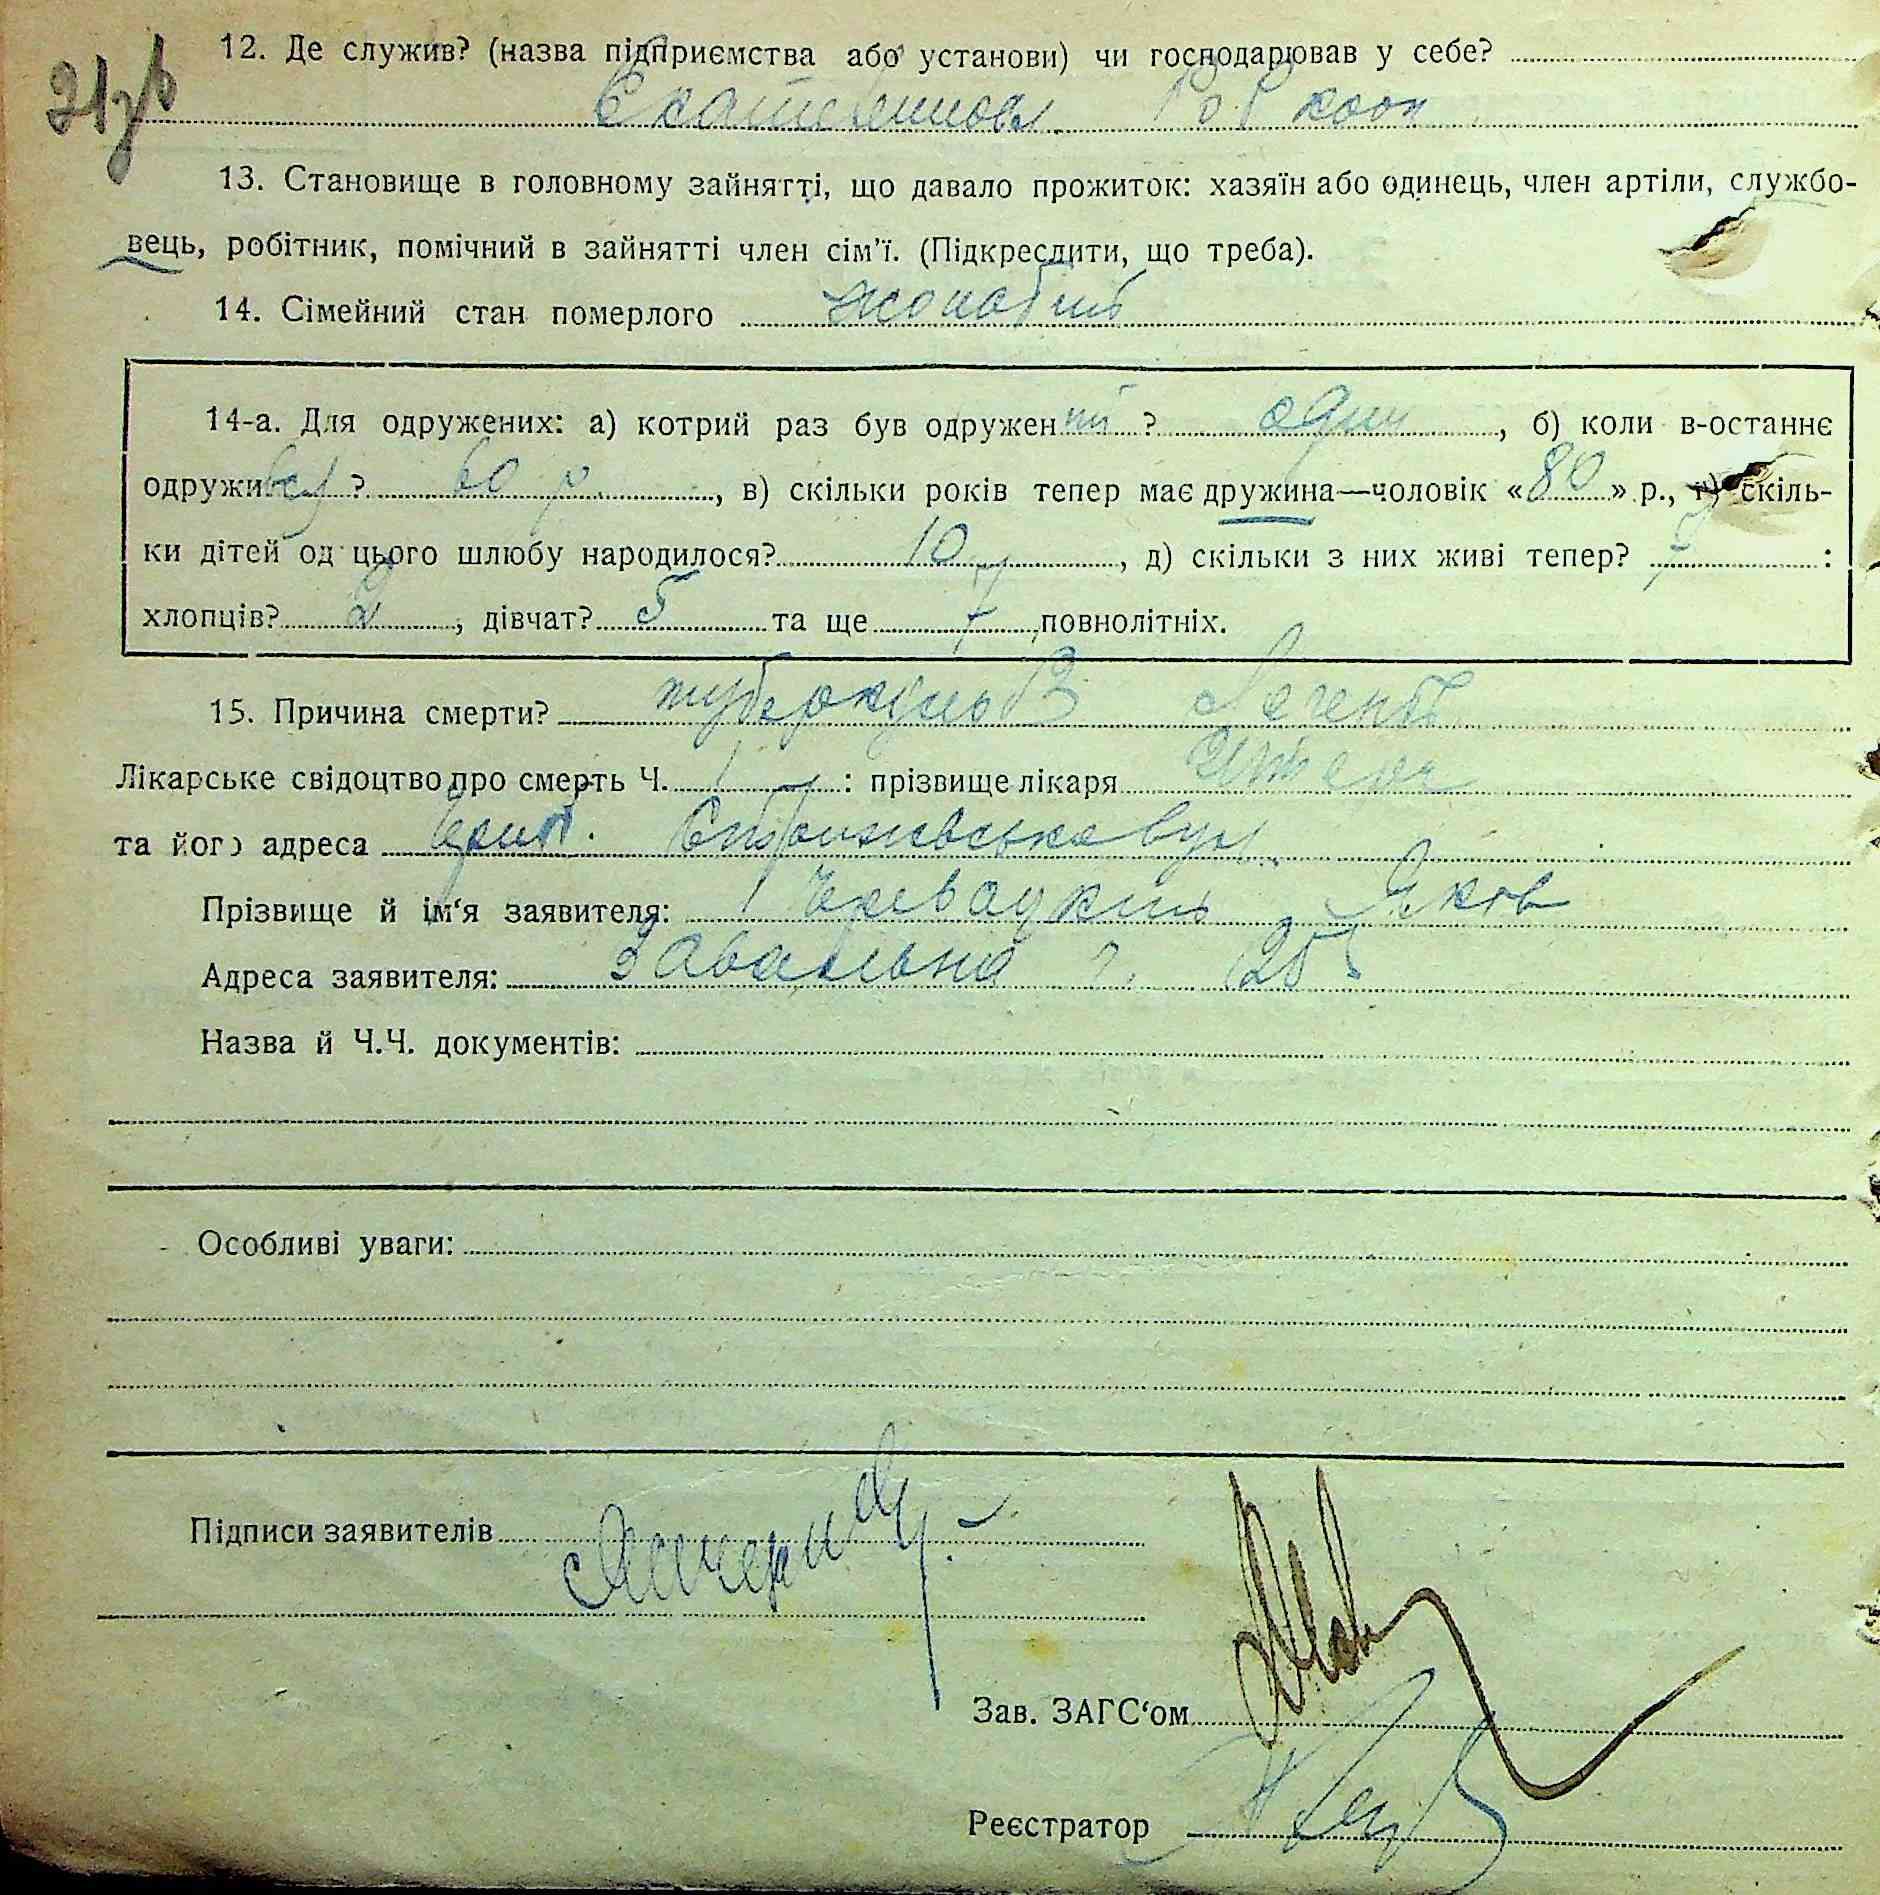 21зв
12. Де служив? (назва підприємства або установи) чи господарював у себе?
Роб кооп
13. Становище в головному зайнятті, що давало прожиток: хазяїн або одинець, член артіли, службо-
вець, робітник, помічний в зайнятті член сім'ї. (Підкреслити, що треба).
14. Сімейний стан померлого жонатий
14-а. Для одружених: а) котрий раз був одружений? один, б) коли в-останнє
одруживсь? 60 р., в) скільки років тепер має дружина—чоловік «80» р., г) скіль-
ки дітей од цього шлюбу народилося? 10, д) скільки з них живі тепер? 7:
хлопців? 2, дівчат? 5 та ще 7 повнолітніх.
15. Причина смерти? туберкульоз легенів
Лікарське свідоцтво про смерть Ч. : прізвище лікаря
та його адреса вул.
Прізвище й ім'я заявителя: Яков
Адреса заявителя: Завальна 25
Назва й Ч.Ч. документів:
Особливі уваги:
Підписи заявителів
Зав. ЗАГС'ом
Реєстратор